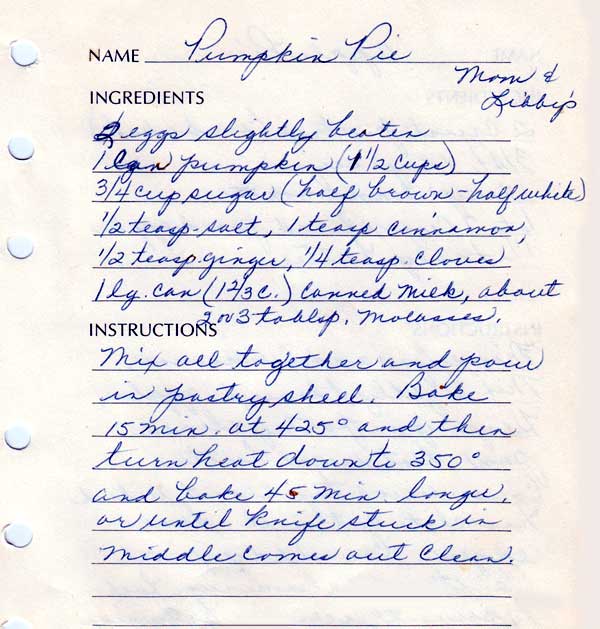 NAME Pumpkin Pie
Mom &
Libby's
INGREDIENTS
2 eggs slightly beaten
1 can pumpkin (1 1/2 cups)
3/4 cup sugar (half brown - half white)
1/2 teasp. salt, 1 teasp cinnamon,
1/2 teasp. ginger, 1/4 teasp. cloves
1 lg. can (1 2/3 c.) canned milk, about
2 or 3 tablsp. molasses.
INSTRUCTIONS
Mix all together and pour
in pastry shell. Bake
15 min. at 425° and then
turn heat down to 350°
and bake 45 min longer,
or until knife stuck in
middle comes out clean.